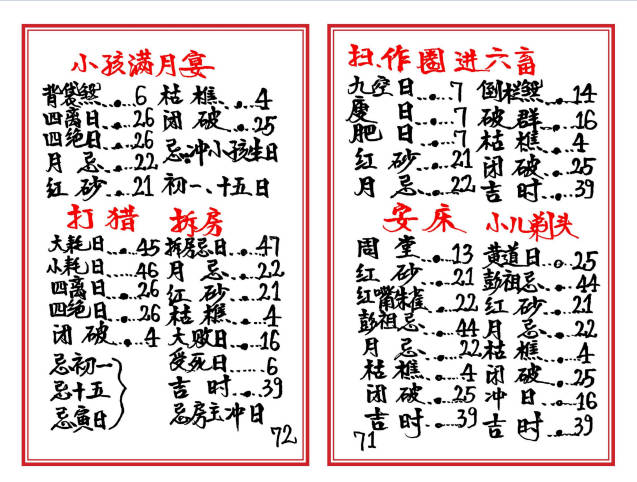 小孩满月宴
背袋煞...6 枯樵...4
四離日...26 闭破...25
四绝日...26 忌冲小孩生日
月忌...22 初一、十五日
红砂...21
打猎 拆房
大耗日...45 拆房忌日...47
小耗日...46 月忌...22
四離日...26 红砂...21
四绝日...26 枯樵...4
闭破...4 大败日...16
忌初一 受死日...6
忌十五 吉时...39
忌寅日 忌房主冲日
72
扫、作圈进六畜
九空日...7 倒栏煞...14
慶日...7 破群...16
肥日...7 枯樵...4
红砂...21 闭破...25
月忌...22 吉时...39
安床 小儿剃头
周堂...13 黄道日...25
红砂...21 彭祖忌...44
红嘴朱雀...22 红砂...21
彭祖忌...44 月忌...22
月忌...22 枯樵...4
枯樵...4 闭破...25
闭破...25 冲日...16
吉时...39 吉时...39
71